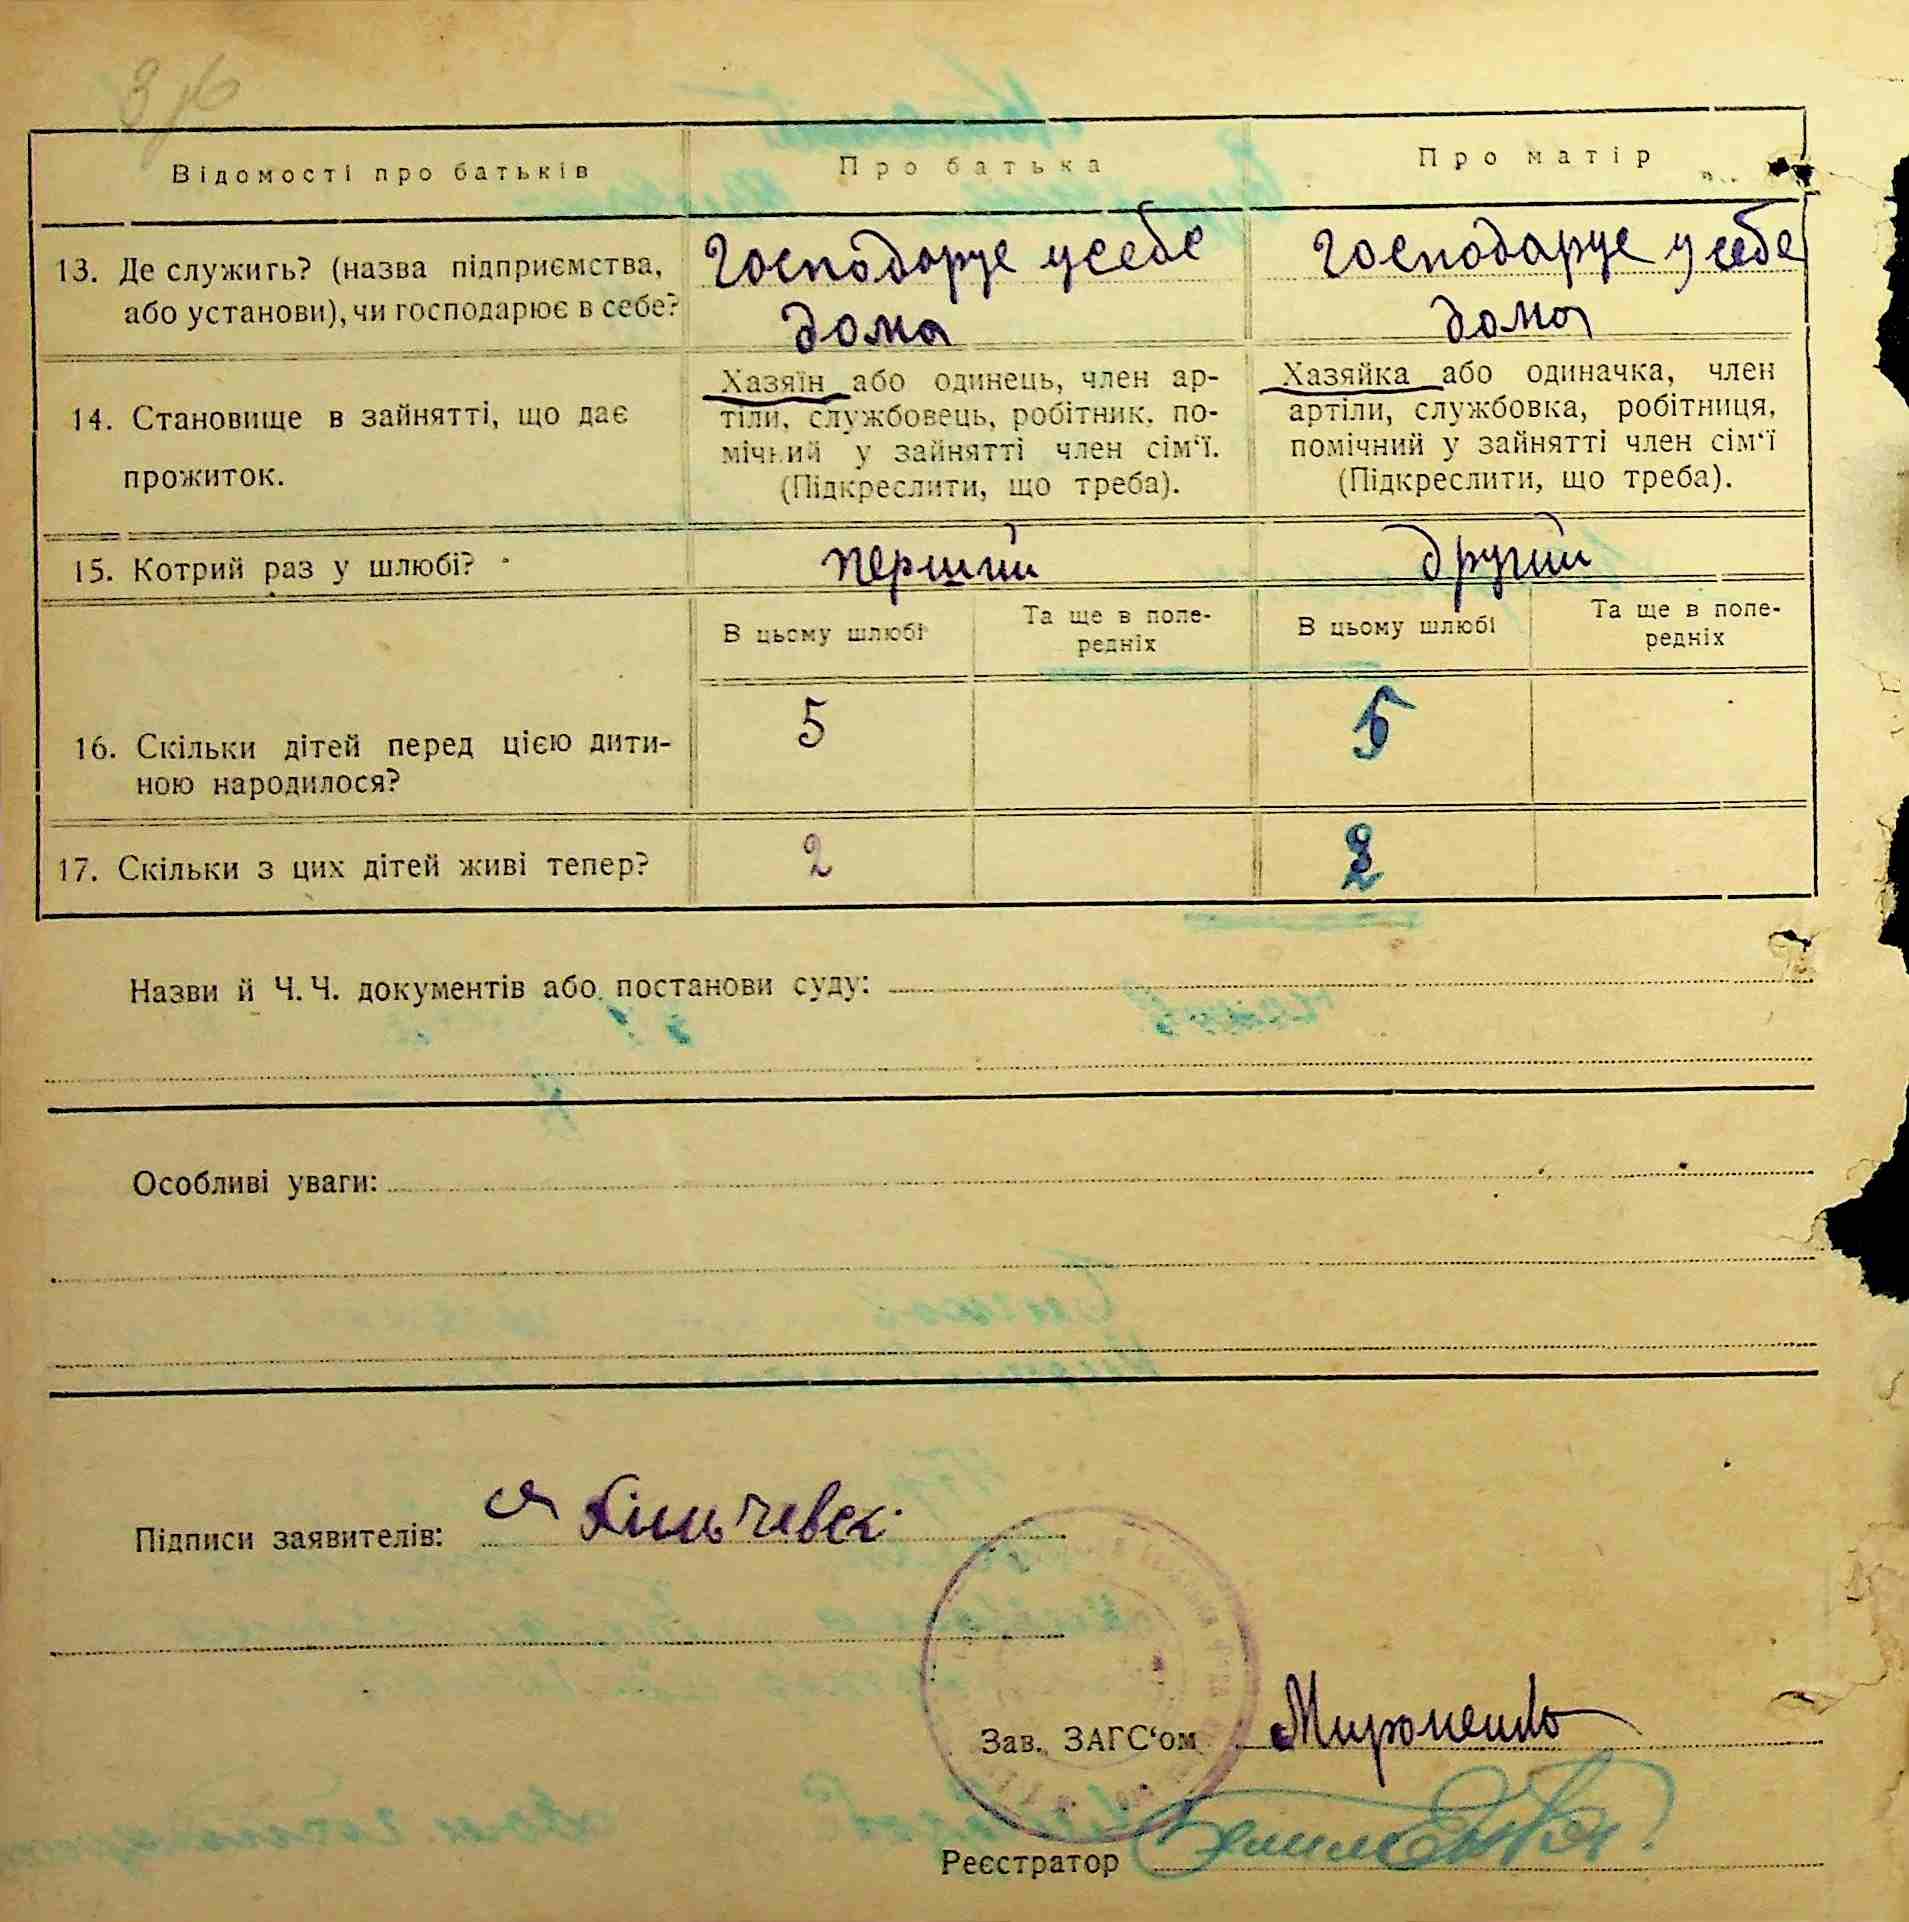 Відомості про батьків Про батька Про матір
13. Де служить? (назва підприємства, або установи), чи господарює в себе?
Господарує у себе
дома
Господарує у себе
дома
14. Становище в зайнятті, що дає
прожиток.
Хазяїн або одинець, член ар-
тіли, службовець, робітник, по-
мічний у зайнятті член сім‘ї.
(Підкреслити, що треба).
Хазяйка або одиначка, член
артіли, службовка, робітниця,
помічний у зайнятті член сім‘ї
(Підкреслити, що треба).
15. Котрий раз у шлюбі? перший другий
В цьому шлюбі Та ще в попе-
редніх В цьому шлюбі Та ще в попе-
редніх
16. Скільки дітей перед цією дити-
ною народилося? 5 5
17. Скільки з цих дітей живі тепер? 2 2
Назви й Ч. Ч. документів або постанови суду:
Особливі уваги:
Підписи заявителів:
Зав. ЗАГС‘ом Мироненко
Реєстратор